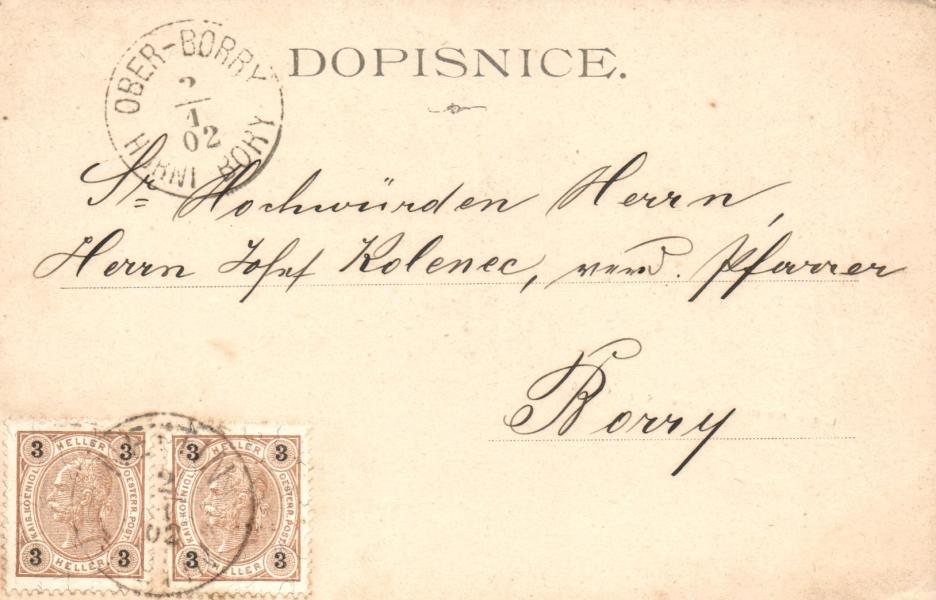 DOPISNICE.
OBER-BORRY
2
1
02
HORNI BORY
Sr Hochwürden Herrn,
Herrn Josef Kolenec, Pfarrer
Borry
3 HELLER 3
KAIS. KOENIGL. OESTERR. POST.
3 HELLER 3
3 HELLER 3
KAIS. KOENIGL. OESTERR. POST.
3 HELLER 3
2
1
02